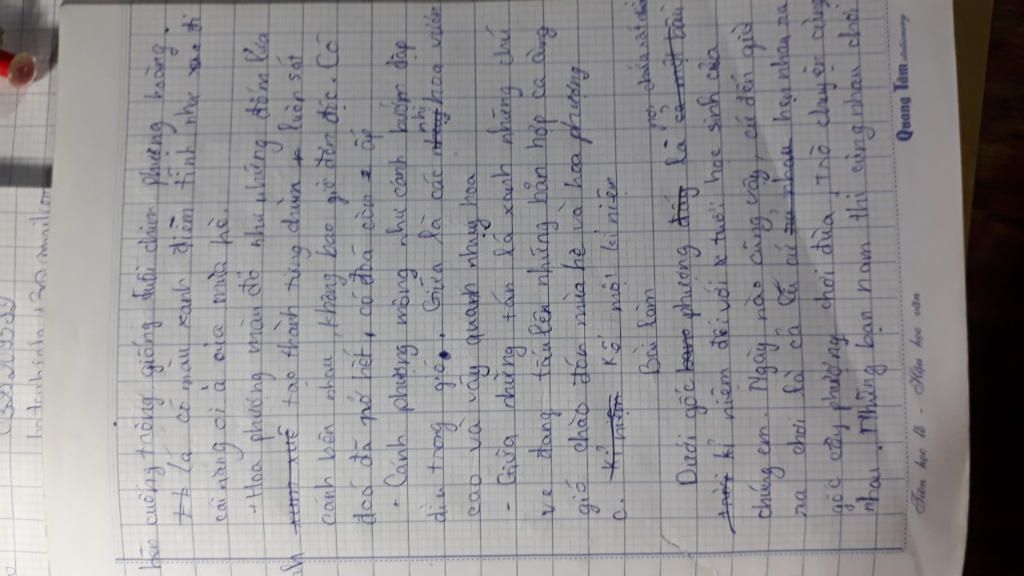 cuống trông giống đuôi chim phượng hoàng.
+ Lá có màu xanh điểm tinh như
cái nắng oi ả của mùa hè.
+ Hoa phượng màu đỏ như những đốm lửa
tạo thành từng chùm luôn sát
cánh bên nhau, không bao giờ đơn độc. Có
đoá đã nở hết, có đoá còn e ấp
- Cánh phượng mỏng như cánh bướm dập
dìu trong gió. Giữa là các nhị hoa vươn
cao và vây quanh nhụy hoa
- Giữa những tán lá xanh những chú
ve đang tấu lên những bản hợp ca càng
gió chào đón mùa hè và hoa phượng
c. Kể một kỉ niệm
Bài làm
Dưới gốc phượng là nơi chứa rất nhiều
kỉ niệm đối với tuổi học sinh của
chúng em. Ngày nào cũng vậy, cứ đến giờ
ra chơi là cả lớp cứ hẹn nhau ra
gốc cây phượng chơi đùa, trò chuyện cùng
nhau. Những bạn nam thì cùng nhau chơi
Tiên học lễ - Hậu học văn
Quang Tâm stationery